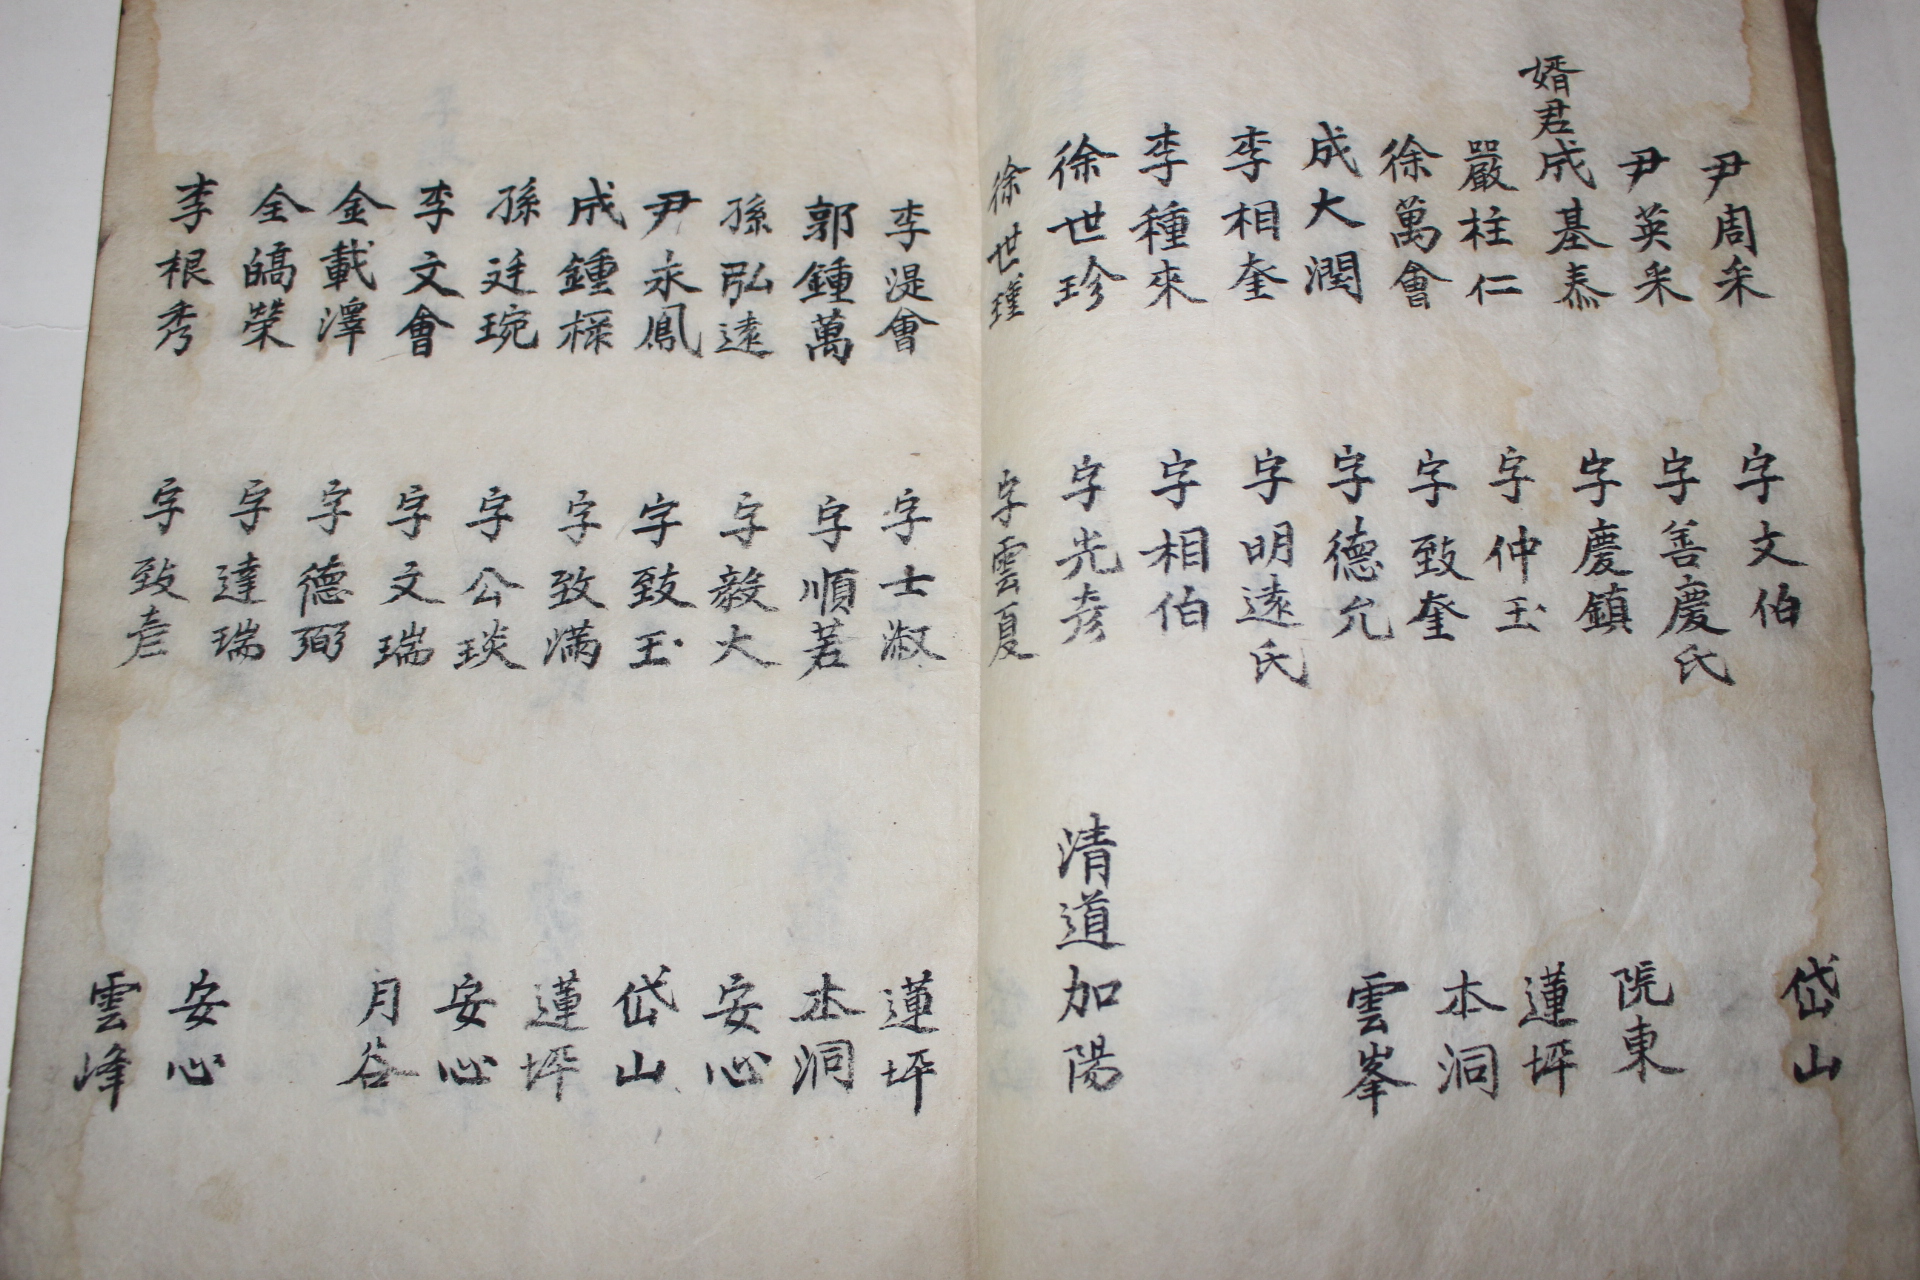 尹周采 字文伯 岱山
尹英采 字善慶氏
婿君成基泰 字慶鎮 院東
嚴柱仁 字仲玉 蓮坪
徐萬會 字致奎 本洞
成大潤 字德允 雲峯
李相奎 字明遠氏
李種來 字相伯
徐世珍 字光彦 清道加陽
徐世瑾 字雲夏
李湜會 字士淑 蓮坪
郭鍾萬 字順若 本洞
孫弘遠 字毅大 安心
尹永鳳 字致玉 岱山
成鍾檡 字致滿 蓮坪
孫廷琬 字公琰 安心
李文會 字文瑞 月谷
金載澤 字德弼
全皜榮 字達瑞 安心
李根秀 字致彦 雲峰